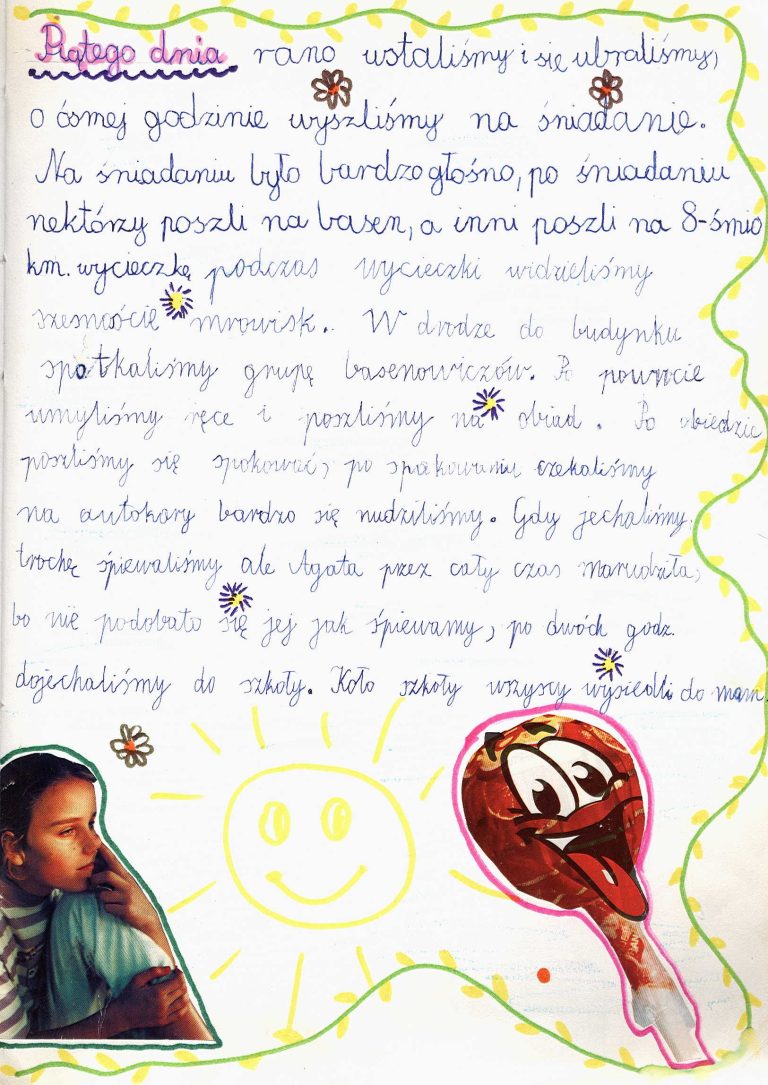 Piątego dnia rano wstaliśmy i się ubraliśmy,
o ósmej godzinie wyszliśmy na śniadanie.
Na śniadaniu było bardzo głośno, po śniadaniu
nektórzy poszli na basen, a inni poszli na 8-śmio
km. wycieczkę podczas wycieczki widzieliśmy
szesnaście mrowisk. W drodze do budynku
spotkaliśmy grupę basenowiczów. Po powrocie
umyliśmy ręce i poszliśmy na obiad. Po obiedzie
poszliśmy się spakować, po spakowaniu czekaliśmy
na autokary bardzo się nudziliśmy. Gdy jechaliśmy,
trochę śpiewaliśmy ale Agata przez cały czas marudziła,
bo nie podobało się jej jak śpiewamy, po dwóch godz.
dojechaliśmy do szkoły. Koło szkoły wszyscy wysiedli do mam.